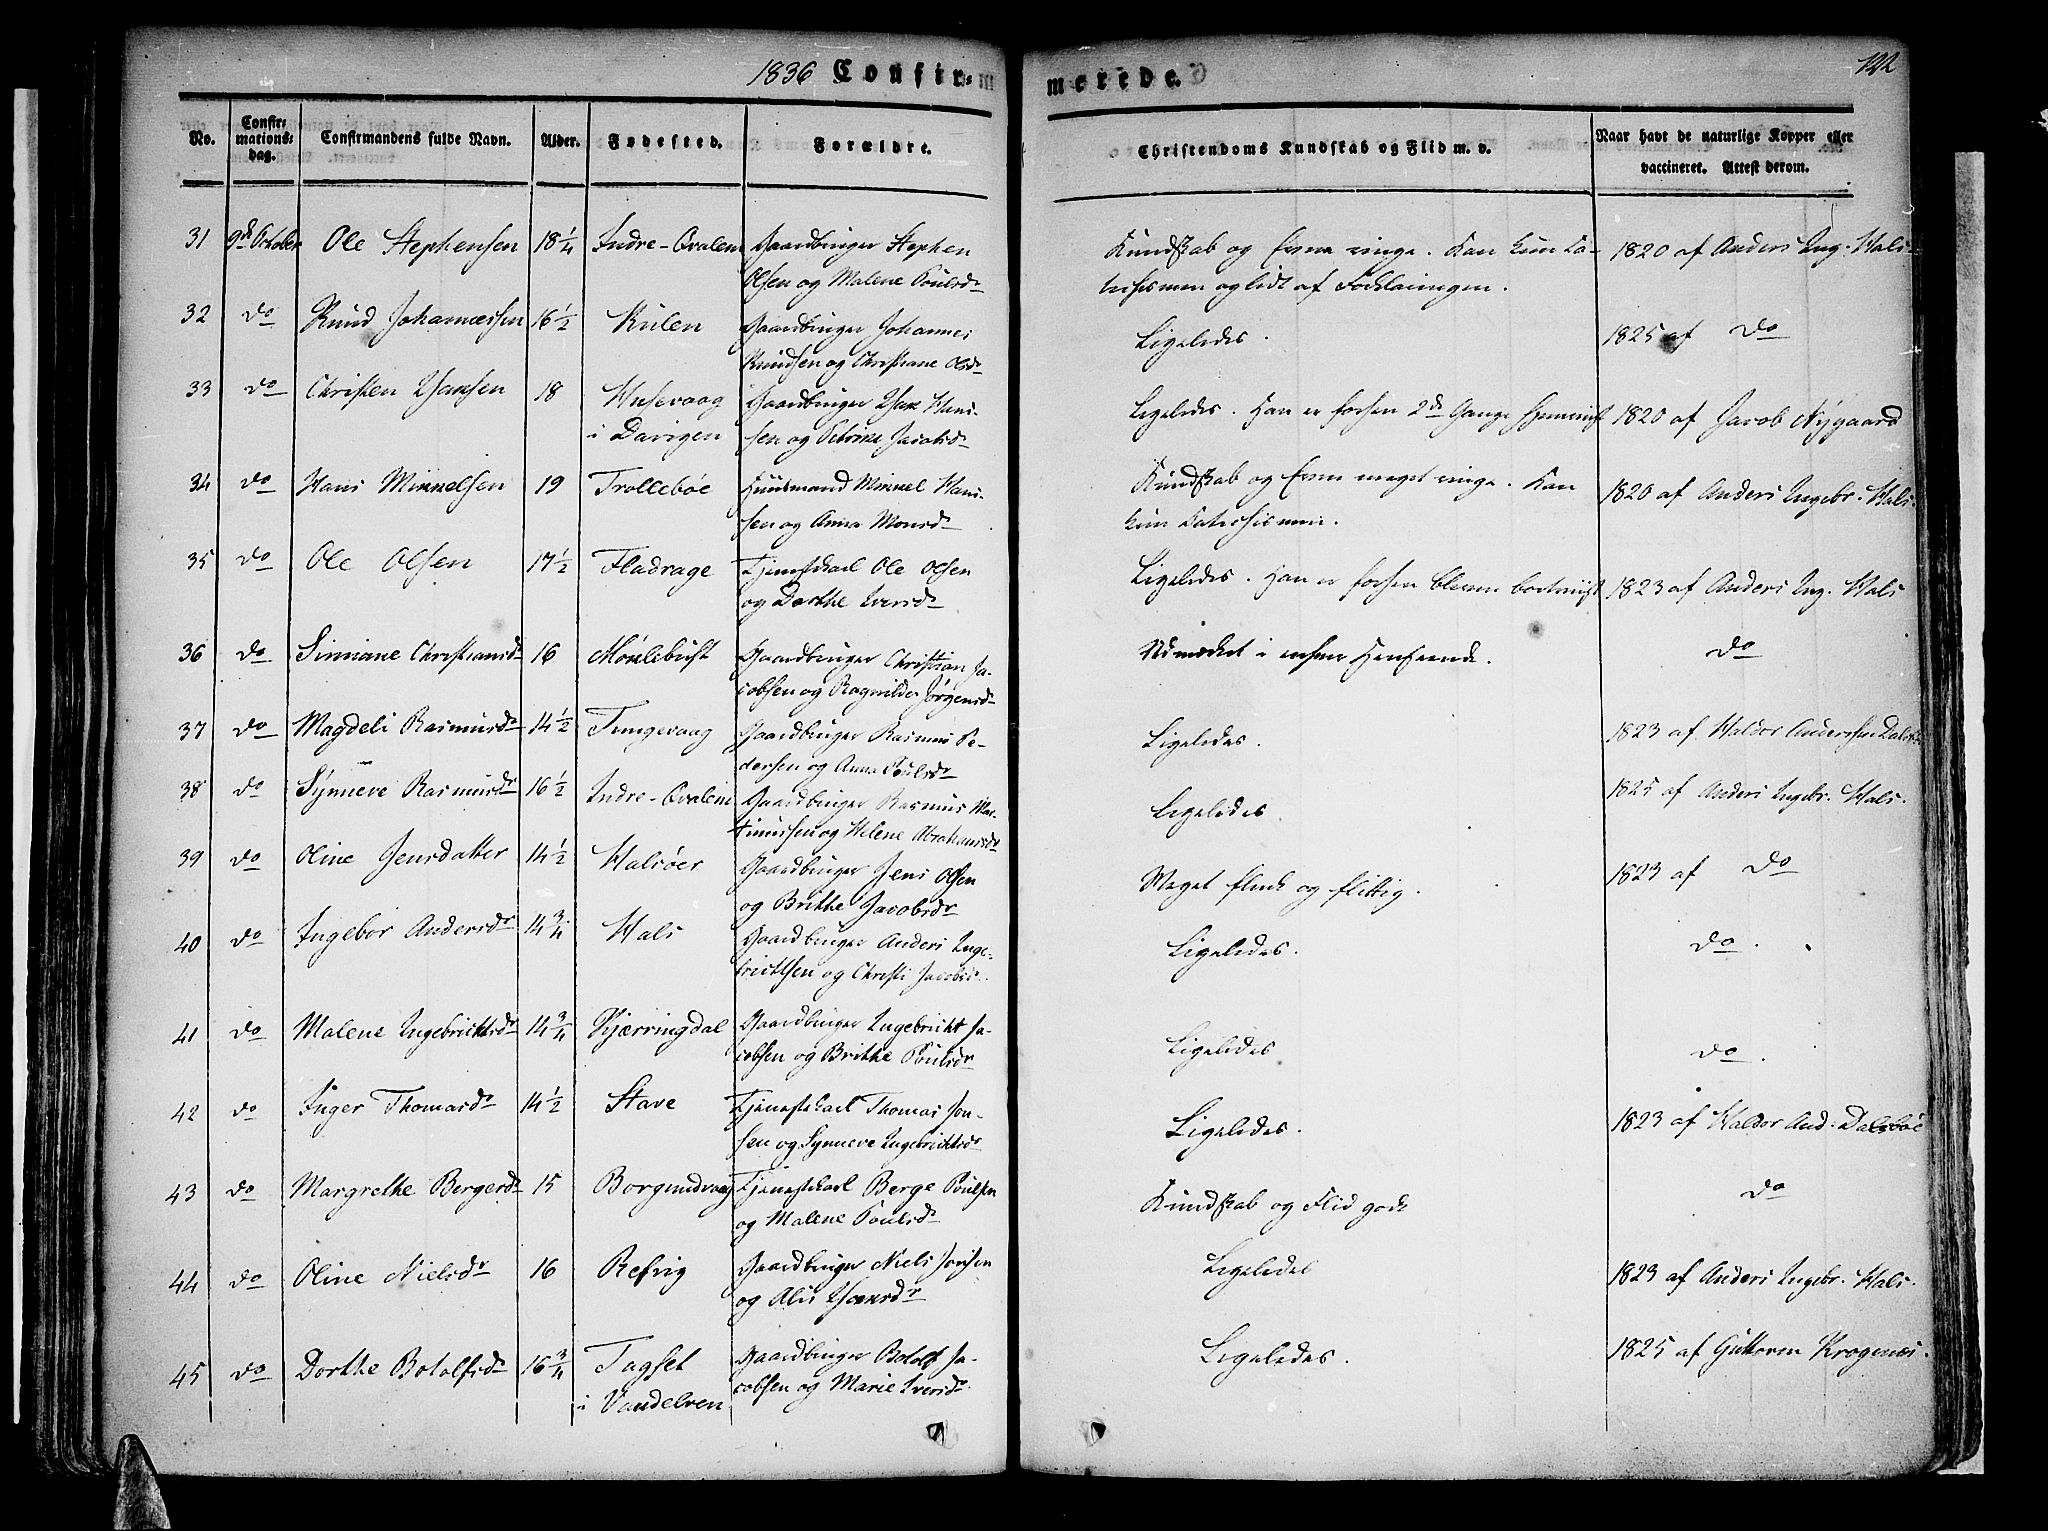 1836 Confir-
merede.
122
No.
Confir-
mations-
dag.
Confirmandens fulde Navn.
Alder.
Fødested.
Forældre.
Christendoms Kundskab og Flid m. v.
Naar havt de naturlige Kopper eller
vaccineret. Attest derom.
31 9de October Ole Stephensen 18 1/4 Indre-Qvalem Gaardbruger Stephen
Olsen og Malene Poulsdr
Kundskab og Evne ringe. Kan kun Ca-
techismen og lidt af Forklaringen.
1820 af Anders Ing. Hals
32 do Knud Johannessen 16 1/2 Kulen Gaardbruger Johannes
Knudsen og Christiane Olsdr
Ligeledes.
1825 af do
33 do Christen Hansen 18 Husevaag
i Davigen
Gaardbruger Hans Han-
sen og Petrine Jacobsdr
Ligeledes. Han er forhen 2de Gange
1820 af Jacob Nygaard
34 do Hans Mikkelsen 19 Trolleböe Huusmand Mikkel Han-
sen og Anna Monsdr
Kundskab og Evne meget ringe. Kan
kun Catechismen.
1820 af Anders Ingebr. Hals.
35 do Ole Olsen 17 1/2 Fladrage Tjenestekarl Ole Olsen
og Dorthe Iversdr
Ligeledes. Han er forhen bleven bortviist
1823 af Anders Ing. Hals
36 do Christiansdr 16 Moulebust Gaardbruger Christian Ja-
cobsen og Ragnilde Jørgensdr
Udmærket i enhver Henseende.
do
37 do Magdeli Rasmusdr 14 1/2 Tungevaag Gaardbruger Rasmus Pe-
dersen og Anna Poulsdr
Ligeledes.
1823 af Haldor Andersen
38 do Synneve Rasmusdr 16 1/2 Indre-Qvalem Gaardbruger Rasmus Mar-
tinussen og Helene Abrahamsdr
Ligeledes.
1825 af Anders Ingebr. Hals.
39 do Oline Jensdatter 14 1/2 Halsöer Gaardbruger Jens Olsen
og Brithe Jacobsdr
Meget flink og flittig.
1823 af do
40 do Ingebor Andersdr 14 3/4 Hals Gaardbruger Anders Inge-
brictsen og Christi Jacobsdr
Ligeledes.
do.
41 do Malene Ingebrichtsdr 14 3/4 Kjærringdal Gaardbruger Ingebricht Ja-
cobsen og Brithe Poulsdr
Ligeledes
do.
42 do Inger Thomasdr 14 1/2 Stave Tjenestekarl Thomas Jon-
sen og Synneve Ingebrichtsdr
Ligeledes.
1823 af Haldor And: Dalsböe
43 do Margrethe Bergersdr 15 Borgundvaag Tjenestekarl Berge Poulsen
og Malene Poulsdr
Kundskab og Flid godt
do
44 do Oline Nielsdr 16 Refvig Gaardbruger Niels
og Alis Hansdr
Ligeledes
1823 af Anders Ingebr. Hals.
45 do Dorthe Botolfsdr 16 3/4 Tagset
i Vandelven
Gaardbruger Botolf Ja-
cobsen og Marie Iversdr
Ligeledes.
1825 af Guttorm Krogenæs.